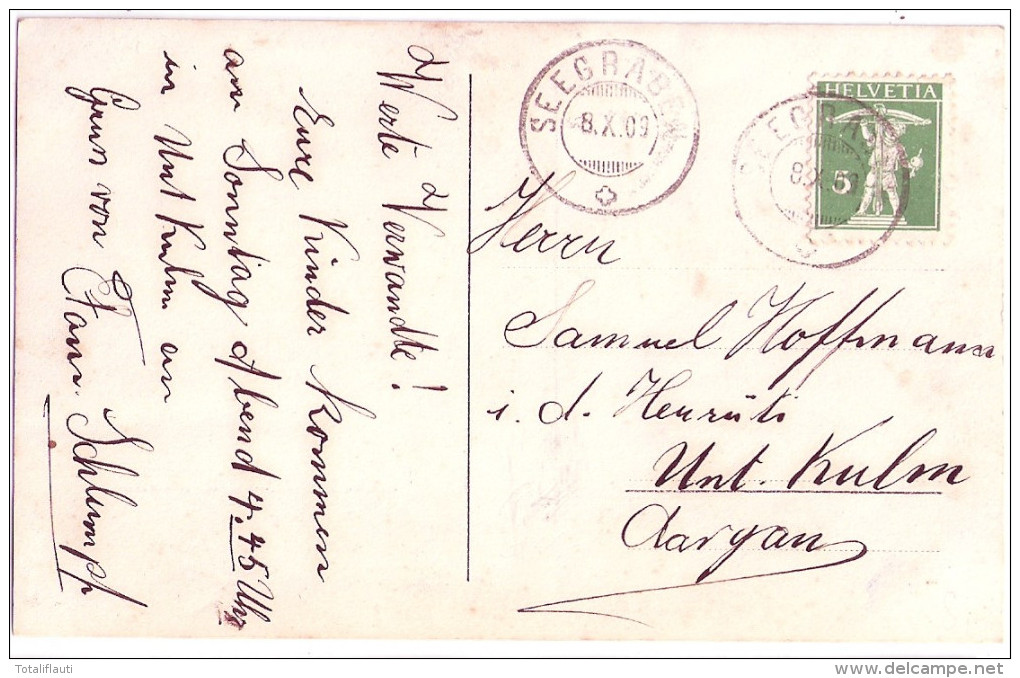 Werte Verwandte!
Eure Kinder kommen
am Sonntag Abend 4.45 Uhr
in Unt Kulm an
Gruss von Fam. Schlumpf
SEEGRÄBEN
8.X.09
HELVETIA
5
SEEGRÄBEN
8.X.09
Herrn
Samuel Hoffmann
i. d. Henrüti
Unt. Kulm
Aargau
Totaliflauti
delcampe.net